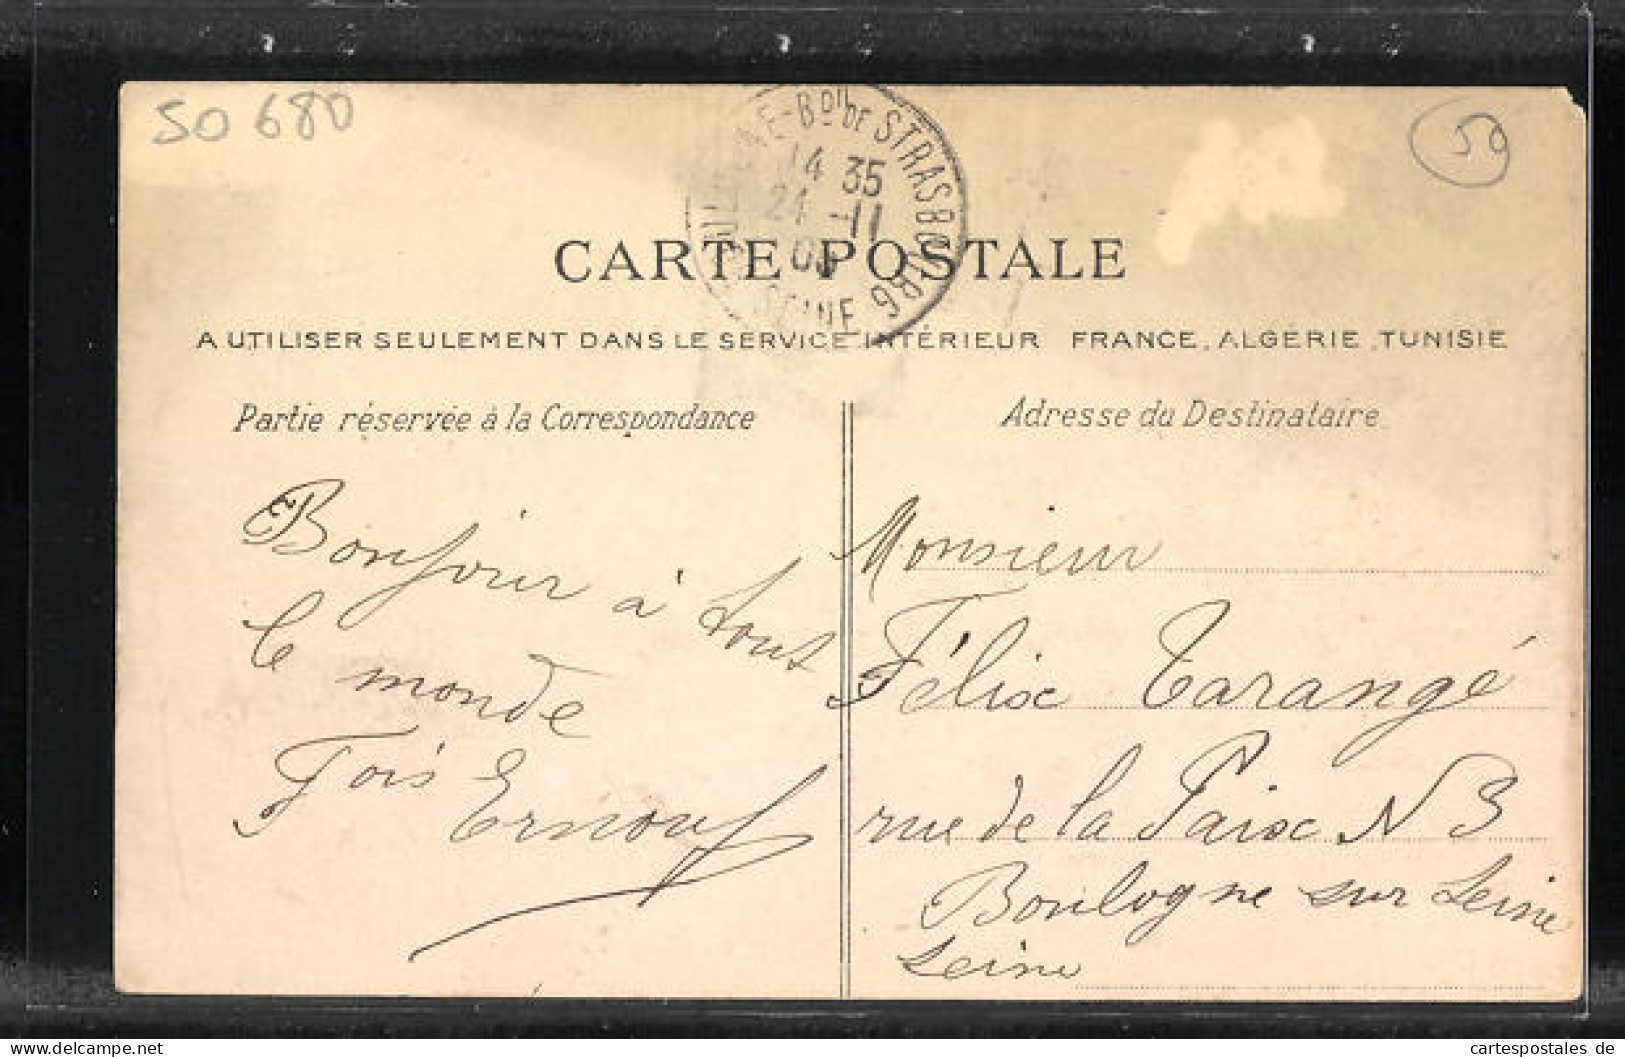 50 680
59
Bd DE STRASBOURG
14 35
21 -11
SEINE
CARTE POSTALE
A UTILISER SEULEMENT DANS LE SERVICE INTÉRIEUR FRANCE, ALGERIE, TUNISIE
Partie réservée à la Correspondance
Bonjour à tout
le monde
Fois Ernouf
Adresse du Destinataire
Monsieur
Félix Tarangé
rue de la Paix N 3
Boulogne sur Seine
Seine
cartespostales de